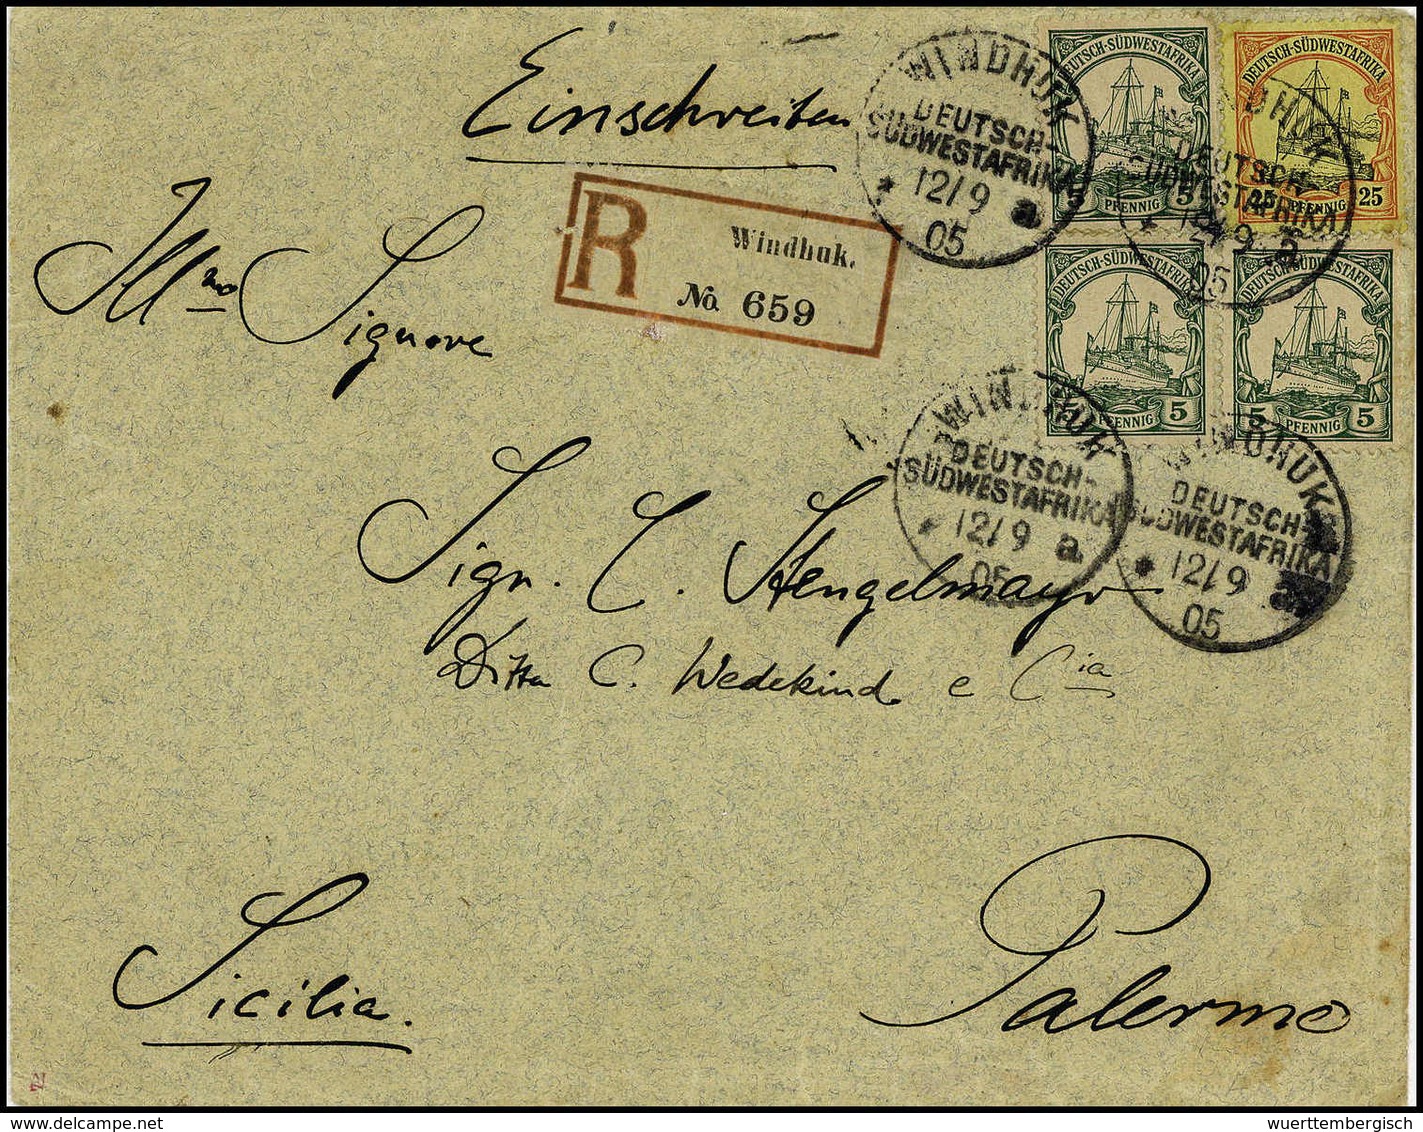 Einschreiben
R Windhuk.
No. 659
WINDHUK
DEUTSCH-
SÜDWESTAFRIKA
* 12/9 a.
05
DEUTSCH-SÜDWESTAFRIKA
5 PFENNIG 5
DEUTSCH-SÜDWESTAFRIKA
25 PFENNIG 25
WINDHUK
DEUTSCH-
SÜDWESTAFRIKA
* 12/9 a.
05
DEUTSCH-SÜDWESTAFRIKA
5 PFENNIG 5
DEUTSCH-SÜDWESTAFRIKA
5 PFENNIG 5
WINDHUK
DEUTSCH-
SÜDWESTAFRIKA
* 12/9 a.
05
WINDHUK
DEUTSCH-
SÜDWESTAFRIKA
* 12/9 a.
05
Illmo Signore
Sign. C. Stengelmayr
Ditta C. Wedekind e Cia
Palermo
Sicilia.
wuerttembergisch